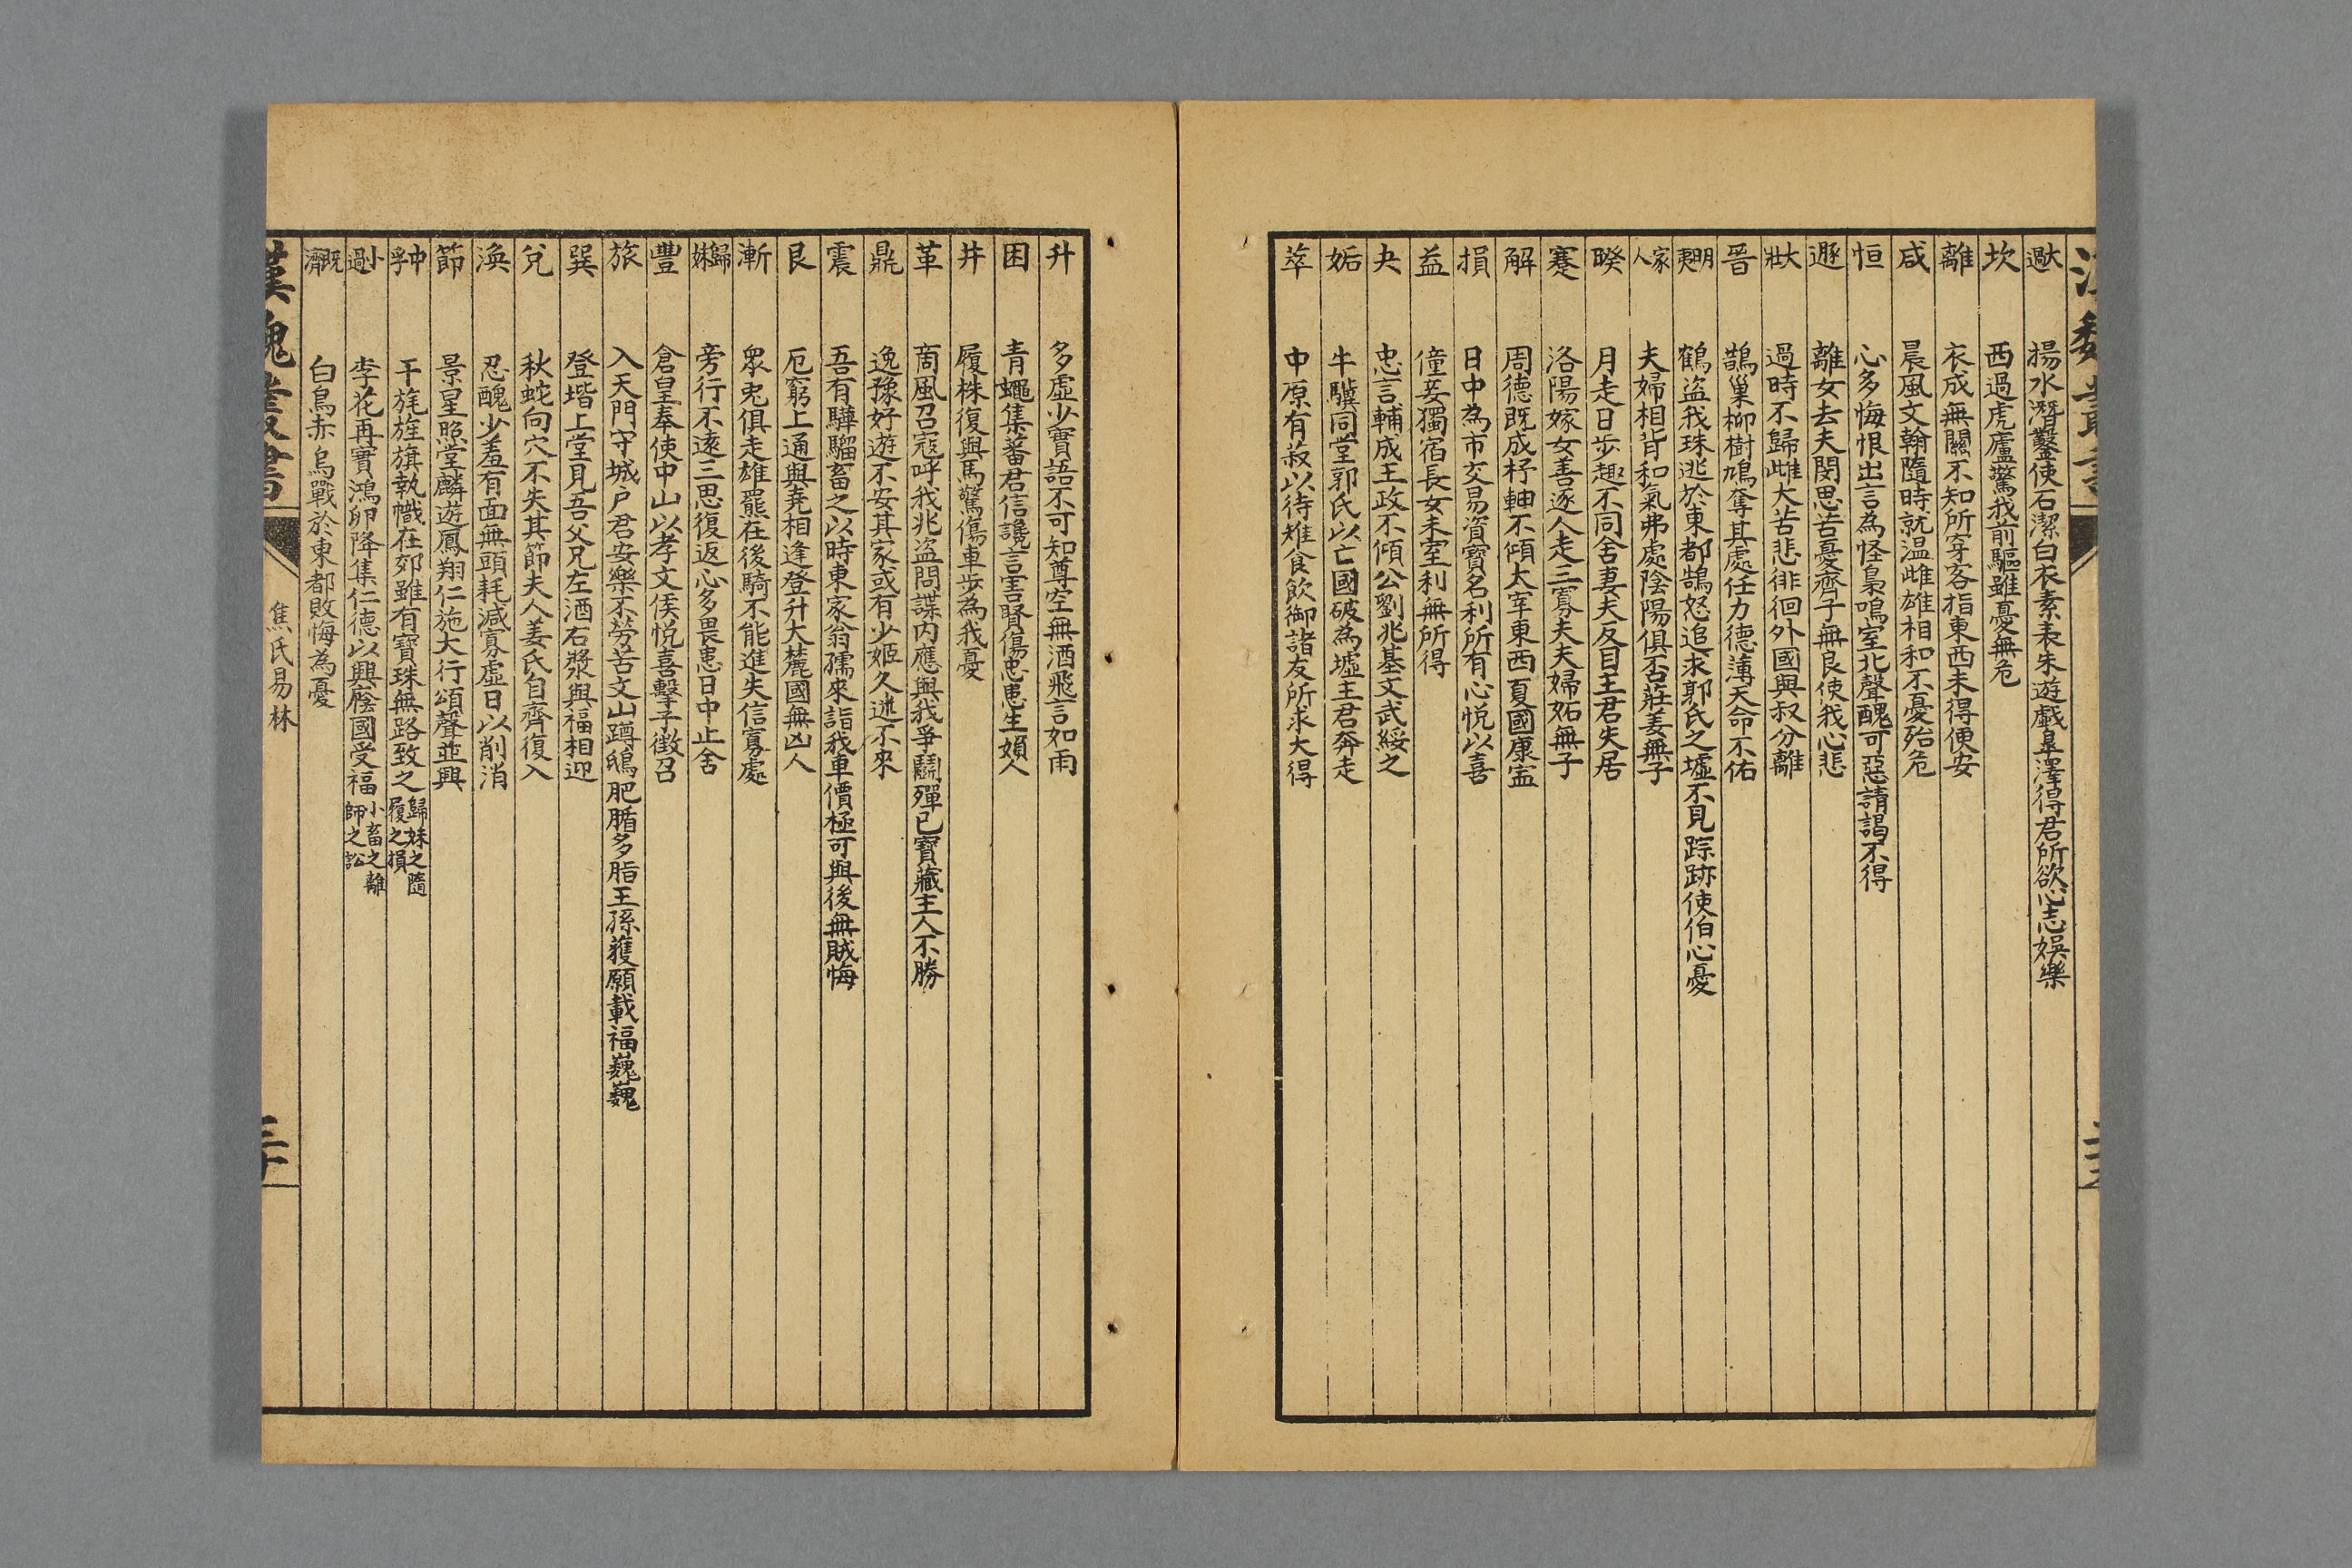 大過 揚水潛鑿使石潔白衣素表朱遊戲皐澤得君所欲心志娛樂
坎 西過虎廬驚我前驅雖憂無危
離 衣成無關不知所穿客指東西未得便安
咸 晨風文翰隨時就溫雌雄相和不憂殆危
恒 心多悔恨出言為怪梟鳴室北聲醜可惡請謁不得
遯 離女去夫閔思苦憂齊子無良使我心悲
大壯 過時不歸雌大苦悲徘徊外國與叔分離
晉 鵲巢柳樹鳩奪其處任力德薄天命不佑
明夷 鶴盜我珠逃於東都鵠怒追求郭氏之墟不見踪跡使伯心憂
家人 夫婦相背和氣弗處陰陽俱否莊姜無子
睽 月走日步趣不同舍妻夫反目主君失居
蹇 洛陽嫁女善逐人走三寡夫夫婦妬無子
解 周德既成杼軸不傾大宰東西夏國康寍
損 日中為市交易資寶名利所有心悅以喜
益 僮妾獨宿長女未室利無所得
夬 忠言輔成王政不傾公劉兆基文武綏之
姤 牛驥同堂郭氏以亡國破為墟主君奔走
萃 中原有菽以待雉食飲御諸友所求大得
升 多虛少實語不可知尊空無酒飛言如雨
困 青蠅集蕃君信讒言害賢傷忠患生婦人
井 履株復輿馬驚傷車步為我憂
革 商風召寇呼我北盜問諜内應與我爭鬭殫已寶藏主人不勝
鼎 逸豫好遊不安其家或有少姬久迷不來
震 吾有驊騮畜之以時東家翁孺來詣我車價極可與後無賊悔
艮 厄窮上通與堯相逢登升大麓國無凶人
漸 眾兎俱走雄羆在後騎不能進失信寡處
歸妹 旁行不遠三思復返心多畏患日中止舍
豐 倉皇奉使中山以孝文侯悅喜擊子徵召
旅 入天門守城户君安樂不勞苦文山蹲鴟肥腯多脂王孫獲願載福巍巍
巽 登堦上堂見吾父兄左酒右漿與福相迎
兌 秋蛇向穴不失其節夫人姜氏自齊復入
渙 忍醜少羞有面無頭耗減寡虛日以削消
節 景星照堂麟遊鳳翔仁施大行頌聲並興
中孚 干旄旌旗執幟在郊雖有寶珠無路致之 歸妹之隨 履之損
小過 李花再實鴻卵降集仁德以興廕國受福 小畜之離 師之訟
既濟 白鳥赤烏戰於東都敗悔為憂
漢魏叢書 焦氏易林